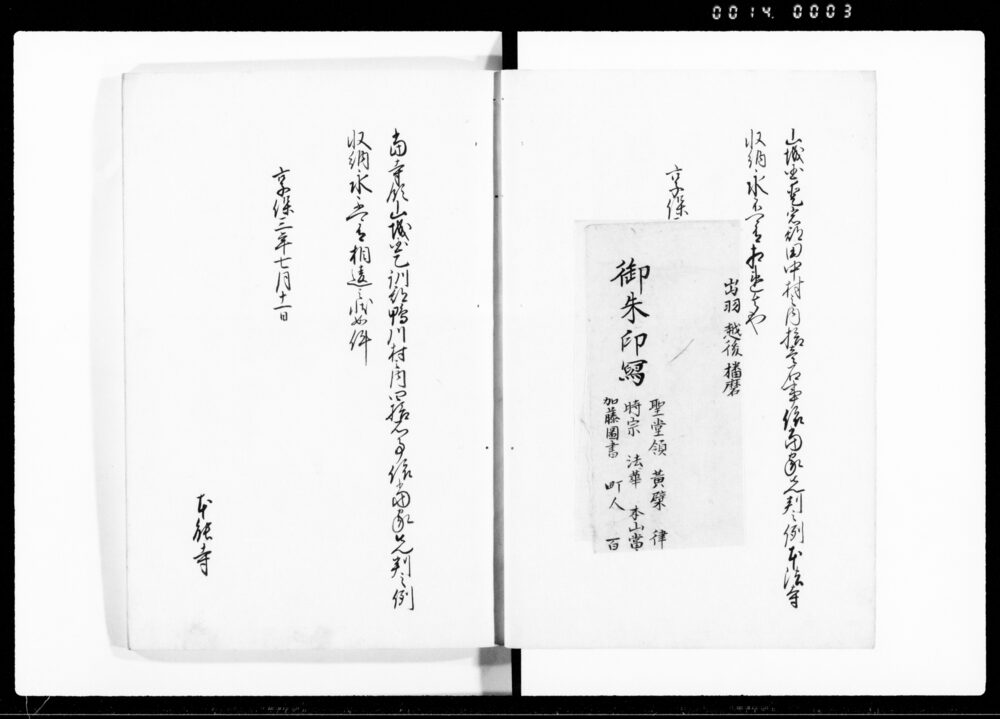 0014 0003
山城国愛宕郡田中村之内拾壱石事依当家先判之例本法寺
収納永不可有相違者也
享保
出羽 越後 播磨
御朱印寫
聖堂領 黄檗 律
時宗 法華 本山當
加藤圖書 町人 百
当寺領山城国乙訓郡鴨川村之内四拾石事依当家先判之例
収納永不可有相違之状如件
享保三年七月十一日
本能寺